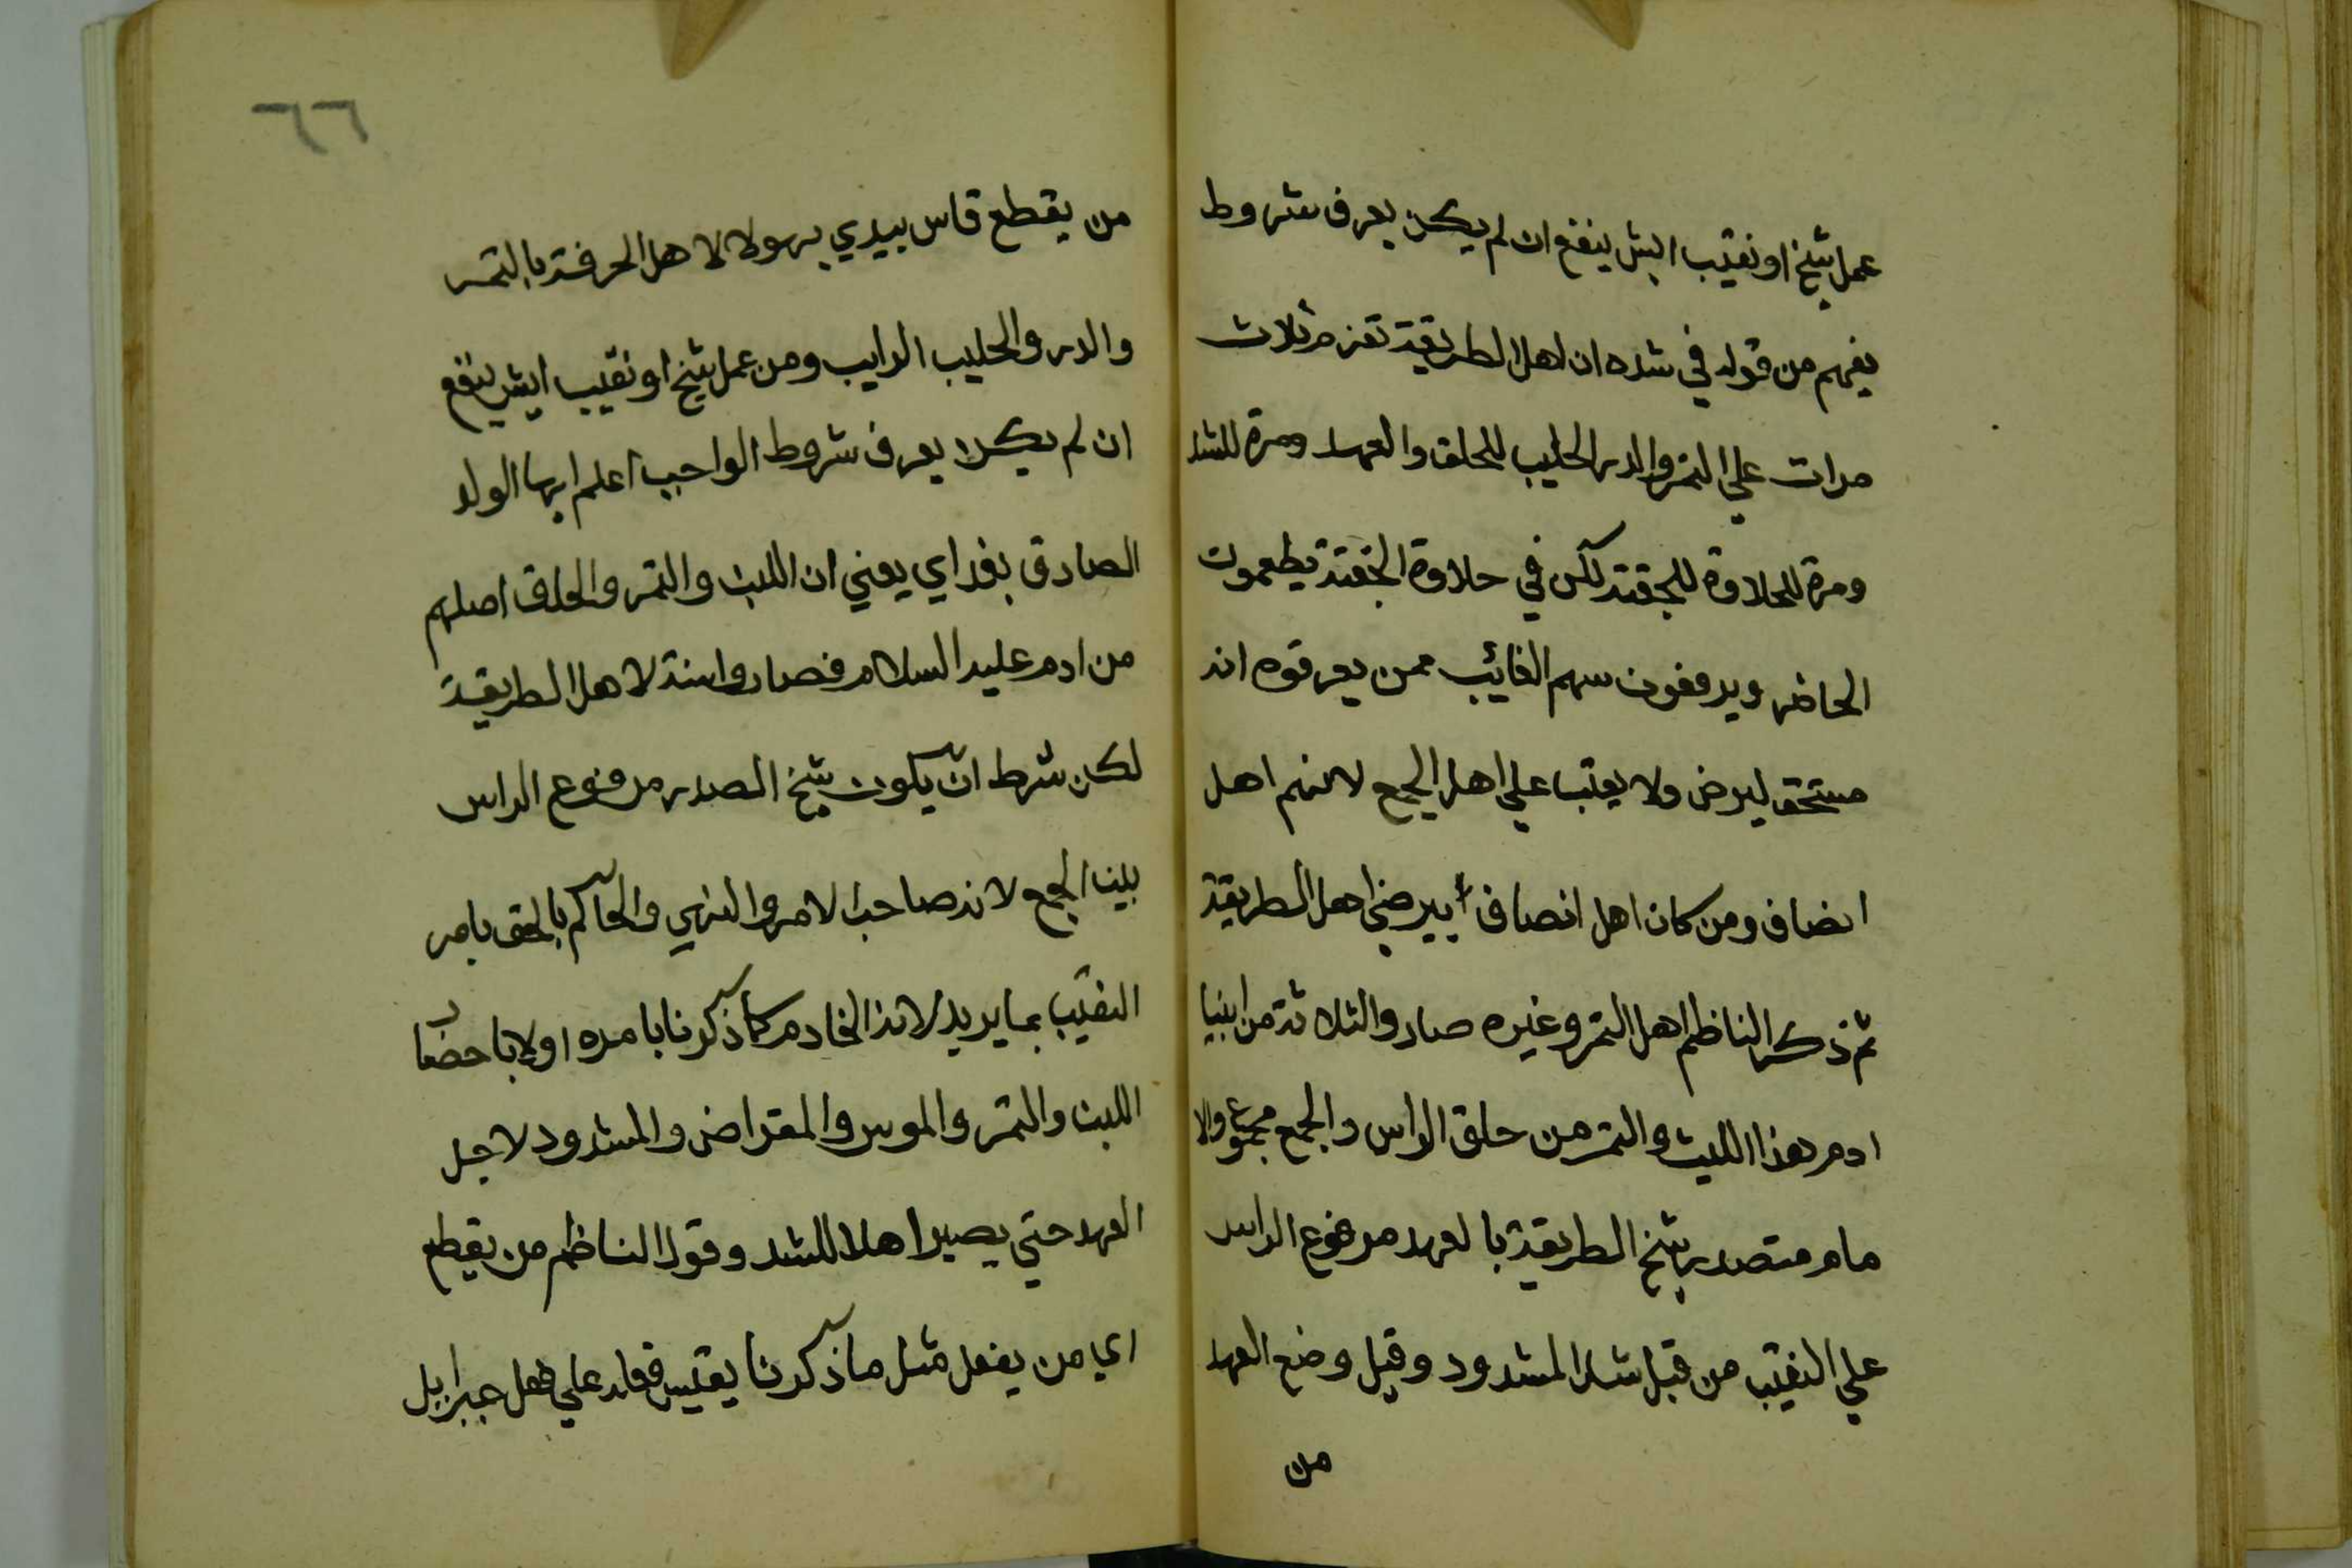 عمل شيخ او نقيب ايش ينفع ان لم يكن يعرف شروط
يفهم من قوله في شده ان اهل الطريقة تعزم ثلاث
مرات علي التمر والدر الحليب للحلق والعهد ومرة للشد
ومرة للحلاوة للجفنه لكن في حلاوة الجفنة يطعمون
الحاضر ويرفعون سهم الغائيب ممن يعرفوه انه
مستحق ليرض ولا يعتب علي اهل الجمع لانهم اهل
انصاف ومن كان اهل انصاف يرضي اهل الطريقة
ثم ذكر الناظم اهل التمر وغيره صار والثلاثة من ابنيا
ادم هذا اللبن والتمر من حلق الراس والجمع مجموع والا
مام متصدر شيخ الطريقة بالعهد مرفوع الراس
علي النقيب من قبل شد المشدود وقبل وضع العهد
من
٦٦
من يقطع قاس بيدي بهولا لاهل الحرفة بالتمر
والدر والحليب الرايب ومن عمل شيخ او نقيب ايش ينفع
ان لم يكن يعرف شروط الواجب اعلم ايها الولد
الصادق يعني ان اللبن والتمر والحلق اصلهم
من ادم عليه السلام فصاروا سنة لاهل الطريقة
لكن شرط ان يكون شيخ الصدر مرفوع الراس
بين الجمع لانه صاحب الامر والنهي والحاكم بالحق يامر
النقيب بما يريد لانه الخادم كما ذكرنا بامره اولا باحضار
اللبن والتمر والموس والمقراض والمشدود لاجل
العهد حتي يصير اهلا للشد وقول الناظم من يقطع
اي من يفعل مثل ما ذكرنا يقيس فعله علي فعل جبرايل